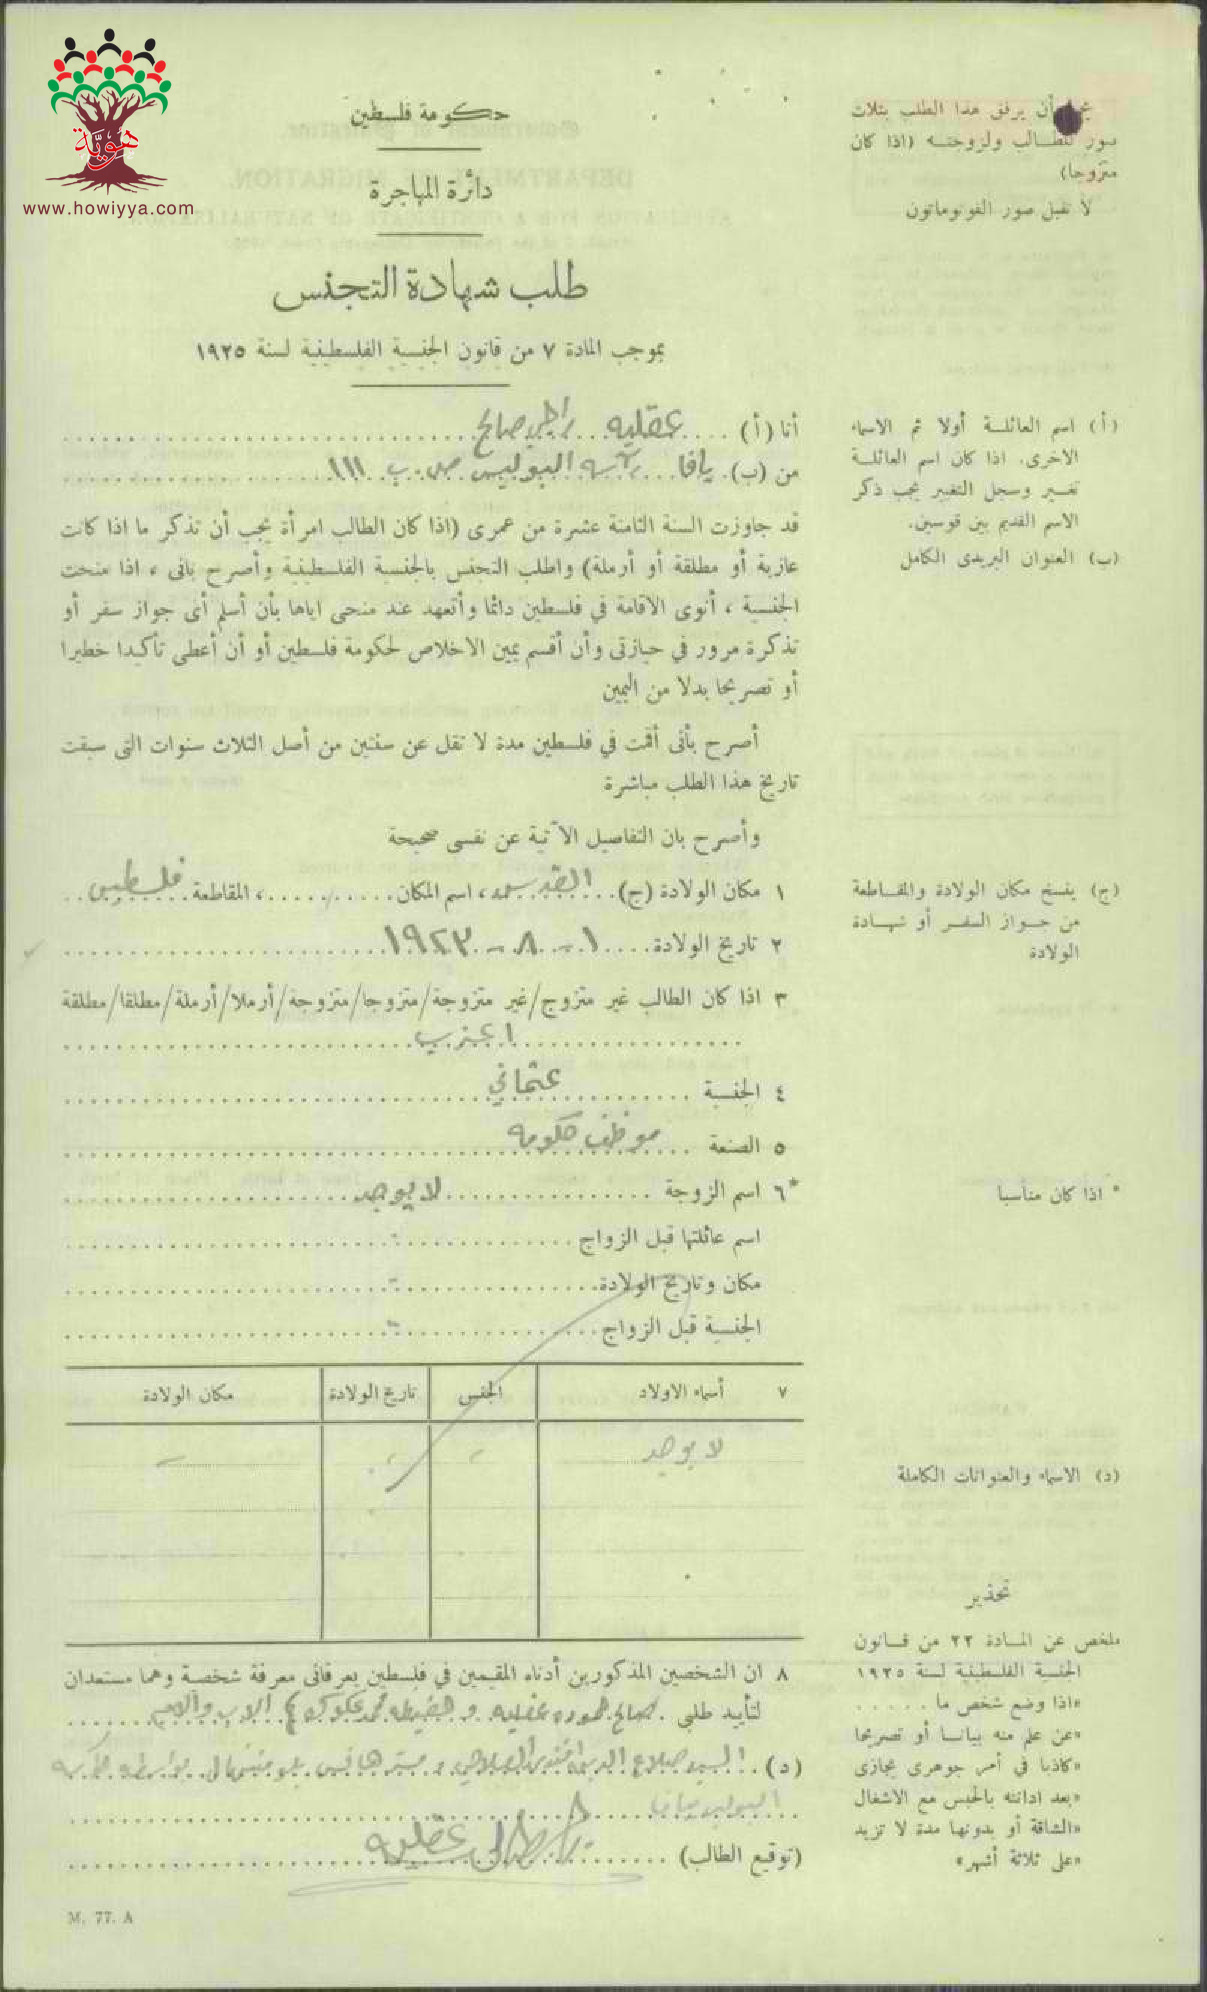 هوية
www.howiyya.com
حكومة فلسطين
دائرة المهاجرة
طلب شهادة التجنس
بموجب المادة ٧ من قانون الجنسية الفلسطينية لسنة ١٩٢٥
يجب أن يرفق هذا الطلب بثلاث
صور للطالب ولزوجته (اذا كان
متزوجا)
لا تقبل صور الفوتوماتون
أنا (أ) .... عقليه راجي صالح
من (ب). يافا ... البوليس ص. ب ١١١
قد جاوزت السنة الثامنة عشرة من عمري (اذا كان الطالب امرأة يجب أن تذكر ما اذا كانت
عازبة أو مطلقة أو أرملة) واطلب التجنس بالجنسية الفلسطينية وأصرح بانى ، اذا منحت
الجنسية ، أنوى الاقامة في فلسطين دائما وأتعهد عند منحى اياها بأن أسلم أى جواز سفر أو
تذكرة مرور في حيازتى وأن أقسم يمين الاخلاص لحكومة فلسطين أو أن أعطى تأكيدا خطيرا
أو تصريحا بدلا من اليمين
أصرح بأنى أقمت في فلسطين مدة لا تقل عن سنتين من أصل الثلاث سنوات التى سبقت
تاريخ هذا الطلب مباشرة
وأصرح بان التفاصيل الآتية عن نفسى صحيحة
١ مكان الولادة (ج) .. القدس ، اسم المكان ..... ، المقاطعة. فلسطين
٢ تاريخ الولادة.... ١ - ٨ - ١٩٢٣
٣ اذا كان الطالب غير متزوج/غير متزوجة/متزوجا/متزوجة/أرملا/أرملة/مطلقا/مطلقة
اعزب
٤ الجنسية ..... عثماني
٥ الصنعة .. موظف حكومه
*٦ اسم الزوجة ..... لا يوجد
اسم عائلتها قبل الزواج ..... -
مكان وتاريخ الولادة..... -
الجنسية قبل الزواج..... -
٧ أسماء الاولاد الجنس تاريخ الولادة مكان الولادة
لا يوجد
٨ ان الشخصين المذكورين أدناه المقيمين في فلسطين يعرفانى معرفة شخصية وهما مستعدان
لتأييد طلبى . صالح حموده عقليه و حفيظه محمد الاب والام
(د) . السيد صلاح الدين بواسطة
البوليس يافا
(توقيع الطالب) ..... عقليه
(أ) اسم العائلة أولا ثم الاسماء
الاخرى. اذا كان اسم العائلة
تغير وسجل التغيير يجب ذكر
الاسم القديم بين قوسين.
(ب) العنوان البريدى الكامل
(ج) ينسخ مكان الولادة والمقاطعة
من جواز السفر أو شهادة
الولادة
* اذا كان مناسبا
(د) الاسماء والعنوانات الكاملة
تحذير
ملخص عن المادة ٢٢ من قانون
الجنسية الفلسطينية لسنة ١٩٢٥
«اذا وضع شخص ما ......
«عن علم منه بيانا أو تصريحا
«كاذبا في أمر جوهرى يجازى
«بعد ادانته بالحبس مع الاشغال
«الشاقة أو بدونها مدة لا تزيد
«على ثلاثة أشهر»
M. 77. A